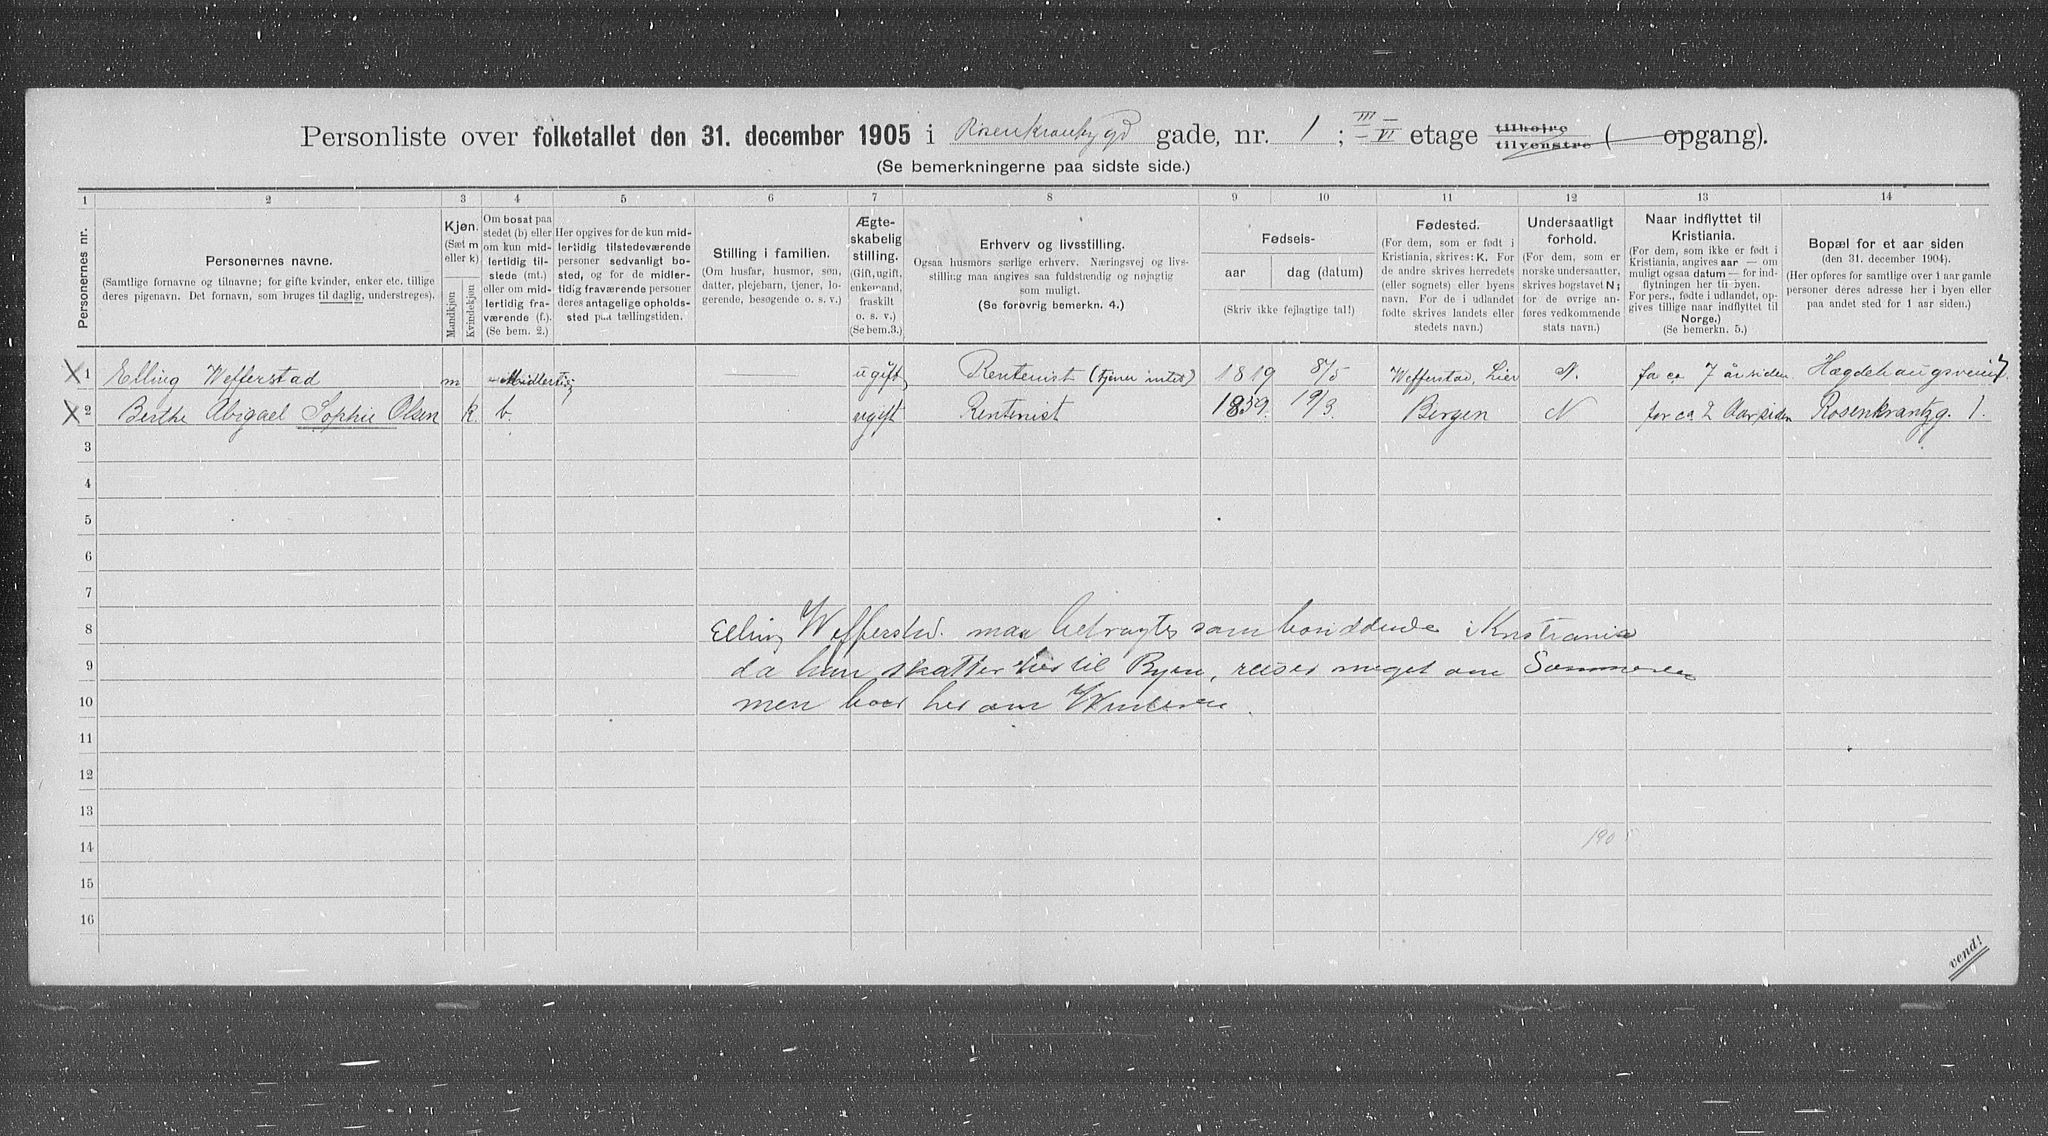 Personliste over folketallet den 31. december 1905 i Rosenkrantz gade, nr. 1; III – VI etage tilhøire tilvenstre ( opgang).
(Se bemerkningerne paa sidste side.)
1 2 3 4 5 6 7 8 9 10 11 12 13 14
Personernes nr.
Personernes navne.
(Samtlige fornavne og tilnavne; for gifte kvinder, enker etc. tillige deres pigenavn. Det fornavn, som bruges til daglig, understreges).
Kjøn.
(Sæt m eller k)
Mandkjøn
Kvindekjøn
Om bosat paa stedet (b) eller om kun midlertidig tilstede (mt.) eller om midlertidig fraværende (f.). (Se bem. 2.)
Her opgives for de kun midlertidig tilstedeværende personer sedvanligt bosted, og for de midlertidig fraværende personer deres antagelige opholdssted paa tællingstiden.
Stilling i familien.
(Om husfar, husmor, søn, datter, plejebarn, tjener, logerende, besøgende o. s. v.)
Ægteskabelig stilling.
(Gift, ugift, enkemand, fraskilt o. s. v.)
(Se bem.3.)
Erhverv og livsstilling.
Ogsaa husmors særlige erhverv. Næringsvej og livsstilling maa angives saa fuldstændig og nøjagtig som muligt.
(Se forøvrig bemerkn. 4.)
Fødsels-
aar dag (datum)
(Skriv ikke fejlagtige tal!)
Fødested.
(For dem, som er født i Kristiania, skrives: K. For de andre skrives herredets (eller sognets) eller byens navn. For de i udlandet fødte skrives landets eller stedets navn.)
Undersaatligt forhold.
(For dem, som er norske undersaatter, skrives bogstavet N; for de øvrige anføres vedkommende stats navn.)
Naar indflyttet til Kristiania.
(For dem, som ikke er født i Kristiania, angives aar — om muligt ogsaa datum — for indflytningen her til byen. For pers., fødte i udlandet, opgives tillige naar indflyttet til Norge.)
(Se bemerkn. 5.)
Bopæl for et aar siden
(den 31. december 1904).
(Her opføres for samtlige over 1 aar gamle personer deres adresse her i byen eller paa andet sted for 1 aar siden.)
X 1 Elling Wefferstad m Midlertig — ugift Rentenist (tjener intet) 1819 8/5 Wefferstad, Lier N. for ca 7 år siden. Hægdehaugsveien 7.
X 2 Berthe Abigael Sophie Olsen k. b. ugift Rentenist 1859. 19/3. Bergen N for ca 2 Aar siden Rosenkrantzg. 1.
3
4
5
6
7
8 Elling Wefferstad. maa betragtes som boiddende i Kristiania
9 da han skatter her til Byen, reiser meget om Sommeren
10 men boer her om Winteren.
11
12
13
14 1905
15
16
vend!